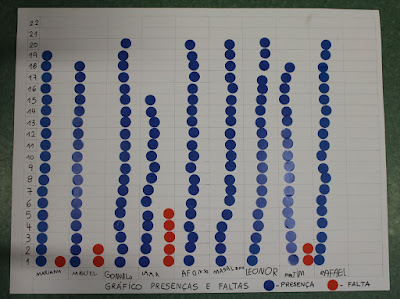 22
21
20
19
18
17
16
15
14
13
12
11
10
9
8
7
6
5
4
3
2
1
MARIANA MIGUEL GONÇALO IARA AFONSO MADALENA LEONOR MARTIM RAFAEL
GRÁFICO PRESENÇAS E FALTAS -PRESENÇA - FALTA